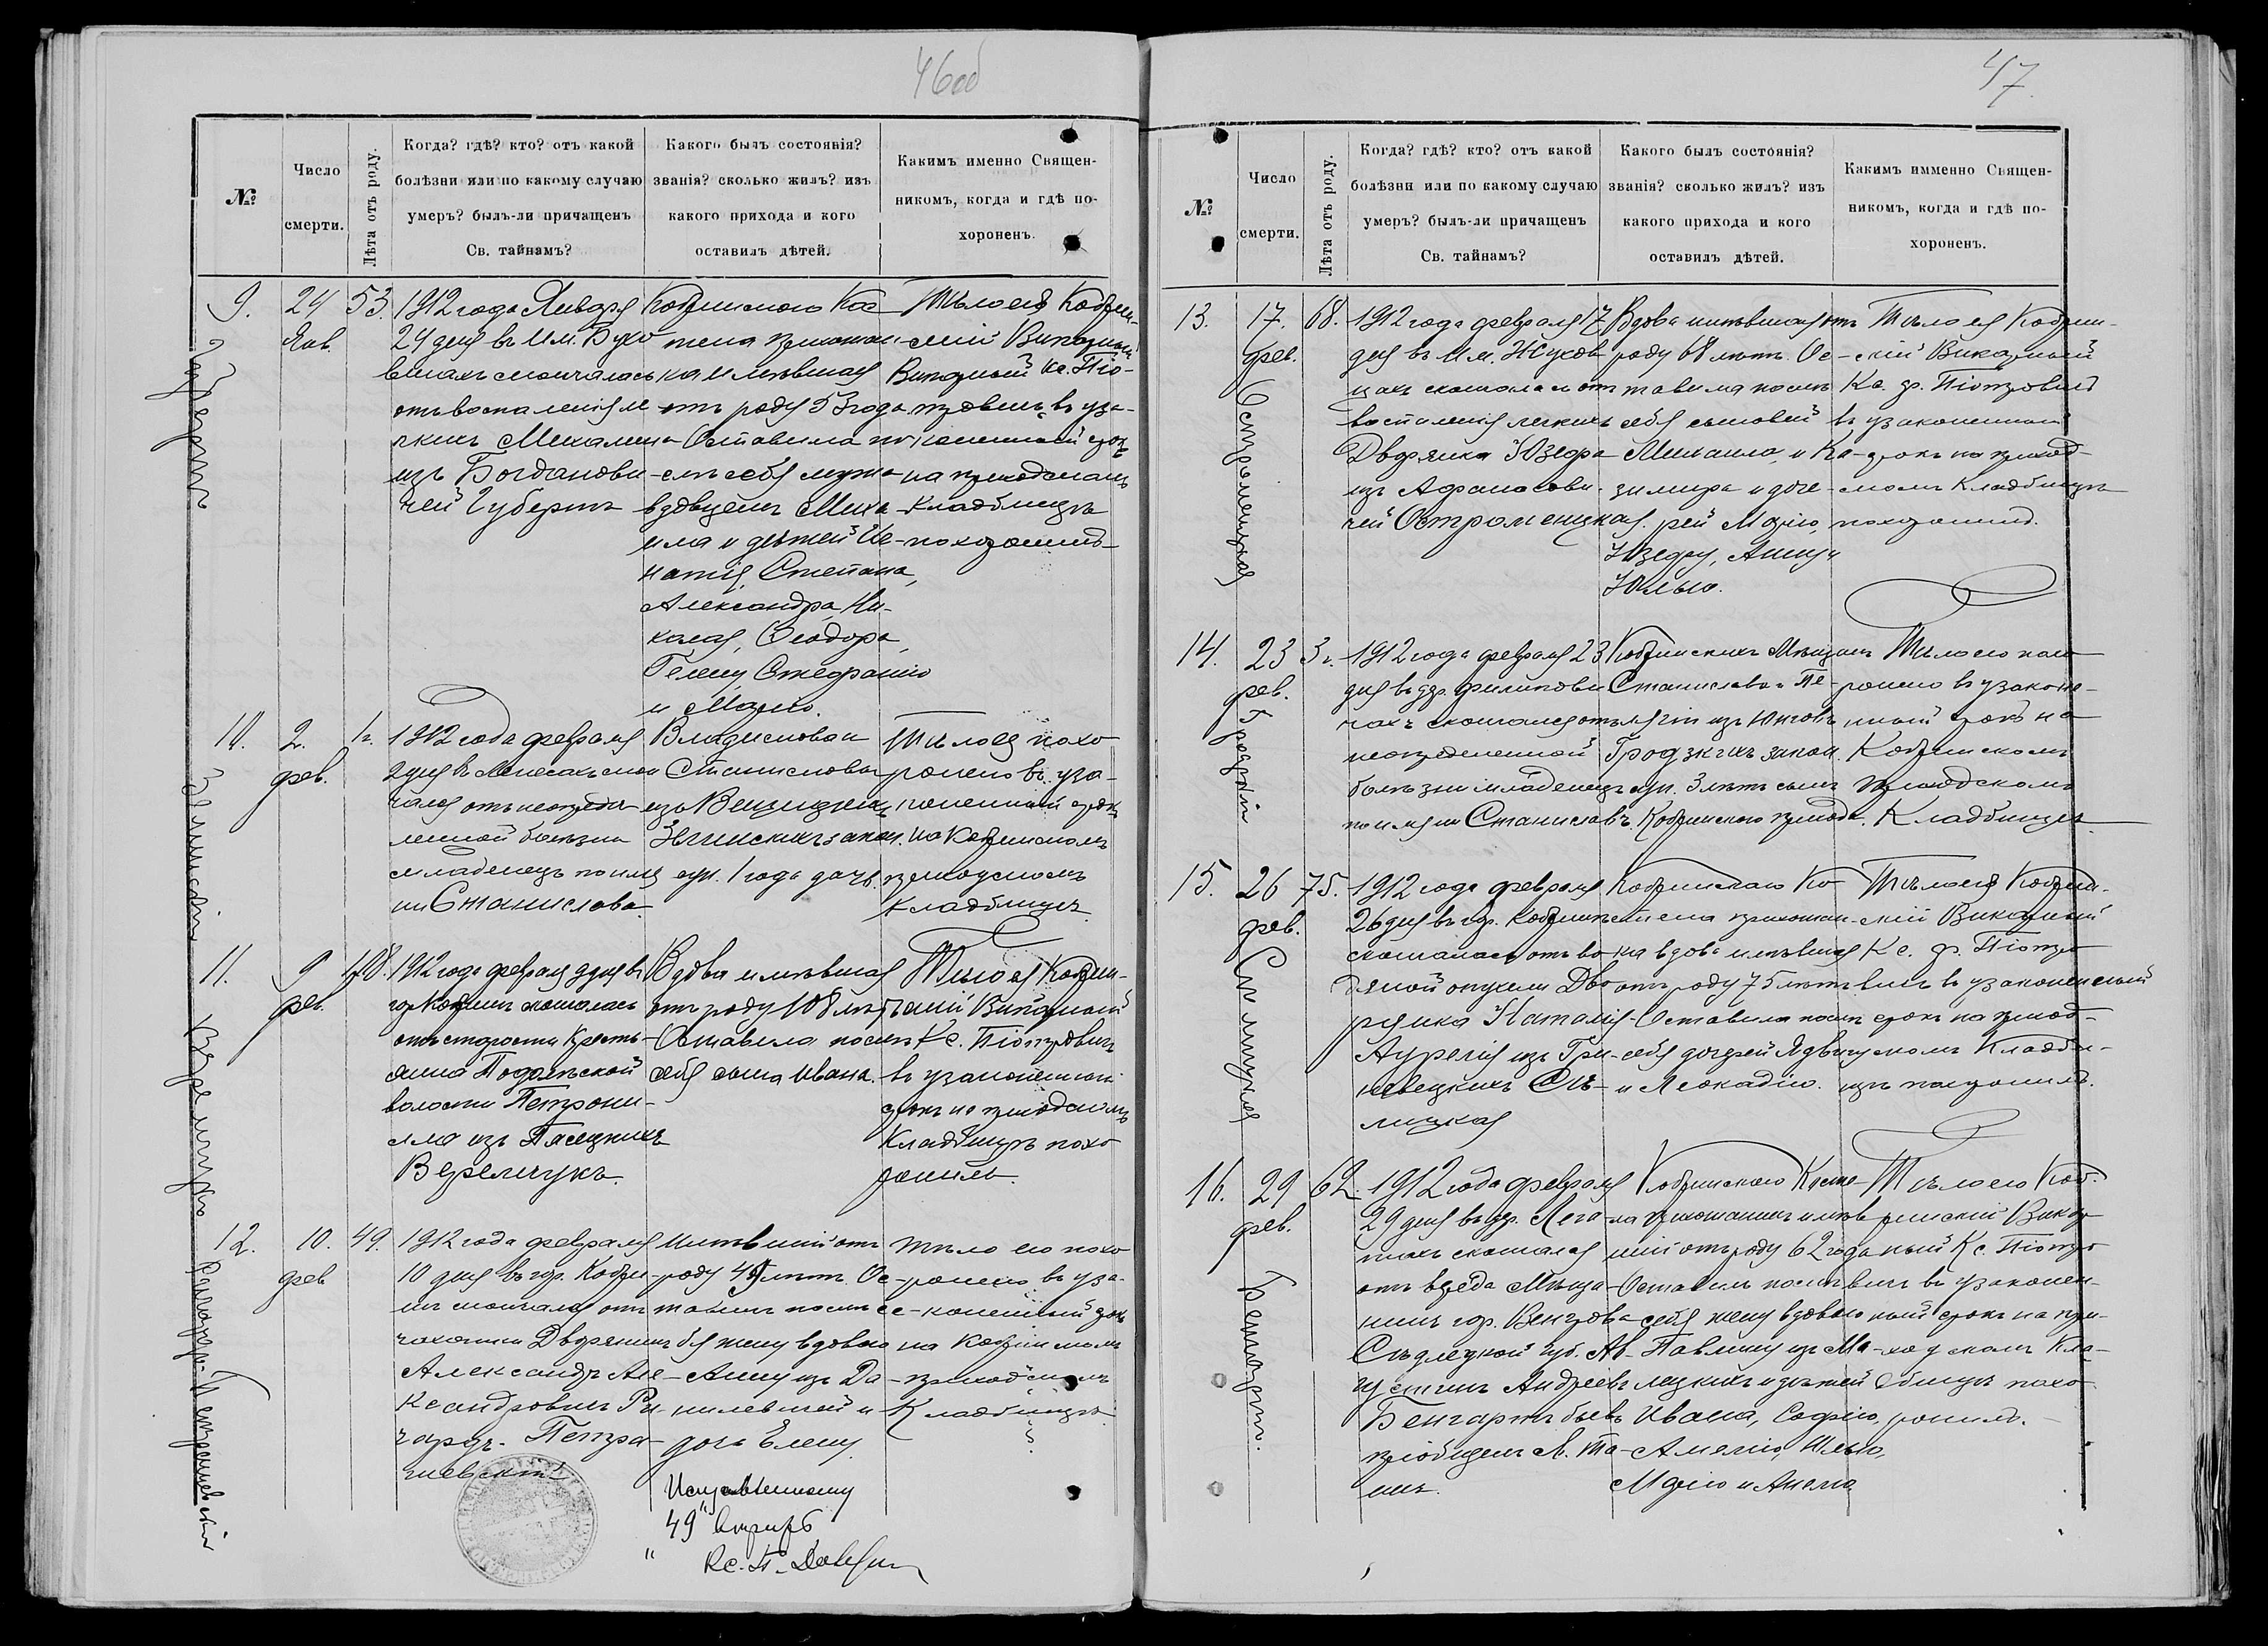 46об
№
Число
смерти.
Лѣта отъ роду.
Когда? гдѣ? кто? отъ какой
болѣзни или по какому случаю
умеръ? былъ-ли причащенъ
Св. тайнамъ?
Какого былъ состоянія?
званія? сколько жилъ? изъ
какого прихода и кого
оставилъ дѣтей.
Какимъ именно Священ-
никомъ, когда и гдѣ по-
хороненъ.
9.
24
Янв.
53.
Губертъ
1912 года Января
24 дня въ Им.
скончалась
отъ воспаленія л
гкихъ Михалина
изъ Богданови-
чей Губертъ
Кобринскаго Кос
тела прихожан
ка имѣвшая
отъ роду 53 года
Оставила по
слѣ себя мужа
вдовцемъ Миха
ила и дѣтей Иг-
натія, Степана,
Александра, Ни-
колая, Ѳеодора,
Гелену Стефанію
и Марію.
Тѣло ея Кобрин-
скій Викарный
Кс. Піо-
тровичъ въ уза-
коненный срокъ
на приходскомъ
Кладбищѣ
похоронилъ
10.
2.
фев.
1г.
1912 года февраля
2 дня въ скон
чалась отъ неопредѣ
ленной болѣзни
младенецъ по име
ни Станислава
Владислова и
Станиславы
изъ
закон.
суп. 1 года дочь.
Тѣло ея похо
ронено въ уза-
коненный срокъ
на Кобринскомъ
приходскомъ
Кладбищѣ.
11.
9
фев.
108.
Веремчукъ
1912 года февраля 9 дня въ
гор. Кобринѣ скончалась
отъ старости Кресть-
янка Подолѣской
волости Петрони-
ля изъ Пясецкихъ
Веремчукъ.
Вдова имѣвшая
отъ роду 108 лѣтъ
Оставила послѣ
себя сына Ивана.
Тѣло ея Кобрин-
скій Викарный
Кс. Піотровичъ
въ узаконенный
срокъ на приходскомъ
Кладбищѣ похо
ронилъ.
12.
10.
фев
49.
1912 года февраля
10 дня въ гор. Кобри-
нѣ скончался отъ
чахотки Дворянинъ
Александръ Але-
ксандровичъ Ри-
чардъ Петра-
шевскій
Имѣвшій отъ
роду 49 лѣтъ. Ос-
тавилъ послѣ се-
бя жену вдовою
Анну изъ Да-
нилевичей и
дочь Елену.
Тѣло его похо
ронено въ уза-
коненный срокъ
на Кобринскомъ
приходскомъ
Кладбищѣ.
Исправленному
"49" вѣрить
Кс.
47
№
Число
смерти.
Лѣта отъ роду.
Когда? гдѣ? кто? отъ какой
болѣзни или по какому случаю
умеръ? былъ-ли причащенъ
Св. тайнамъ?
Какого былъ состоянія?
званія? сколько жилъ? изъ
какого прихода и кого
оставилъ дѣтей.
Какимъ имменно Священ-
никомъ, когда и гдѣ по-
хоронень.
13.
17.
фев.
68.
Остромецкая
1912 года февраля 17
дня въ Им. Жухов
цахъ скончалась отъ
воспаленія легкихъ
Дворянка Юзефа
изъ Афанасови-
чей Остромецкая.
Вдова имѣвшая отъ
роду 68 лѣтъ. Ос-
тавила послѣ
себя сыновей
Михаила, и Ка-
зимира и доче-
рей Марію,
Юзефу, Анну и
Юлью.
Тѣло ея Кобрин-
скій Викарный
Кс. ф. Піотровичъ
въ узаконенный
срокъ на приход-
скомъ Кладбищѣ
похоронилъ.
14.
23
фев.
3г.
Гродзкій
1912 года февраля 23
дня въ дер. Филипови
чахъ скончался отъ
неопредѣленной
болѣзни младенецъ
по имени Станиславъ.
Кобринскихъ Мѣщанъ
Станислава и Пе-
лягіи изъ
Гродзкихъ закон.
суп. 3 лѣтъ сынъ
Кобринскаго прихода.
Тѣло его похо
ронено въ узаконе-
нный срокъ на
Кобринскомъ
приходскомъ
Кладбищѣ
15.
26
фев.
75.
1912 года февраля
26 дня въ гор. Кобринѣ
скончалась отъ во
дяной опухоли Дво
рянка Наталія-
Аурелія изъ Гри-
невецкихъ Си-
лицкая
Кобринскаго Ко
стела прихожан-
ка вдова имѣвшая
отъ роду 75 лѣтъ.
Оставила послѣ
себя дочерей Ядвигу
и Леокадію.
Тѣло ея Кобрин-
скій Викарный
Кс. ф. Піотро
вичъ въ узаконенный
срокъ на приход-
скомъ Кладби-
щѣ похоронилъ.
16.
29
фев.
62
Бенгартъ.
1912 года февраля
29 дня въ дер. Лега-
тахъ скончался
отъ вреда Мѣща-
нинъ гор. Венгрова
Сѣдлецкой Губ. Ав-
густинъ Андреевъ
Бенгартъ бывъ
пріобщенъ Св. Та-
инъ.
Кобринскаго Косте
ла прихожанинъ имѣв
шій отъ роду 62 года
Оставилъ послѣ
себя жену вдовою
Павлину изъ Ма-
лецкихъ и дѣтей
Ивана, Софію,
Амелію, Юлью,
Марію и Анелю
Тѣло его Коб-
ринскій Викар
ный Кс. Піотро
вичъ въ узаконен-
ный срокъ на при-
ходскомъ Кла-
дбищѣ похо-
ронилъ.